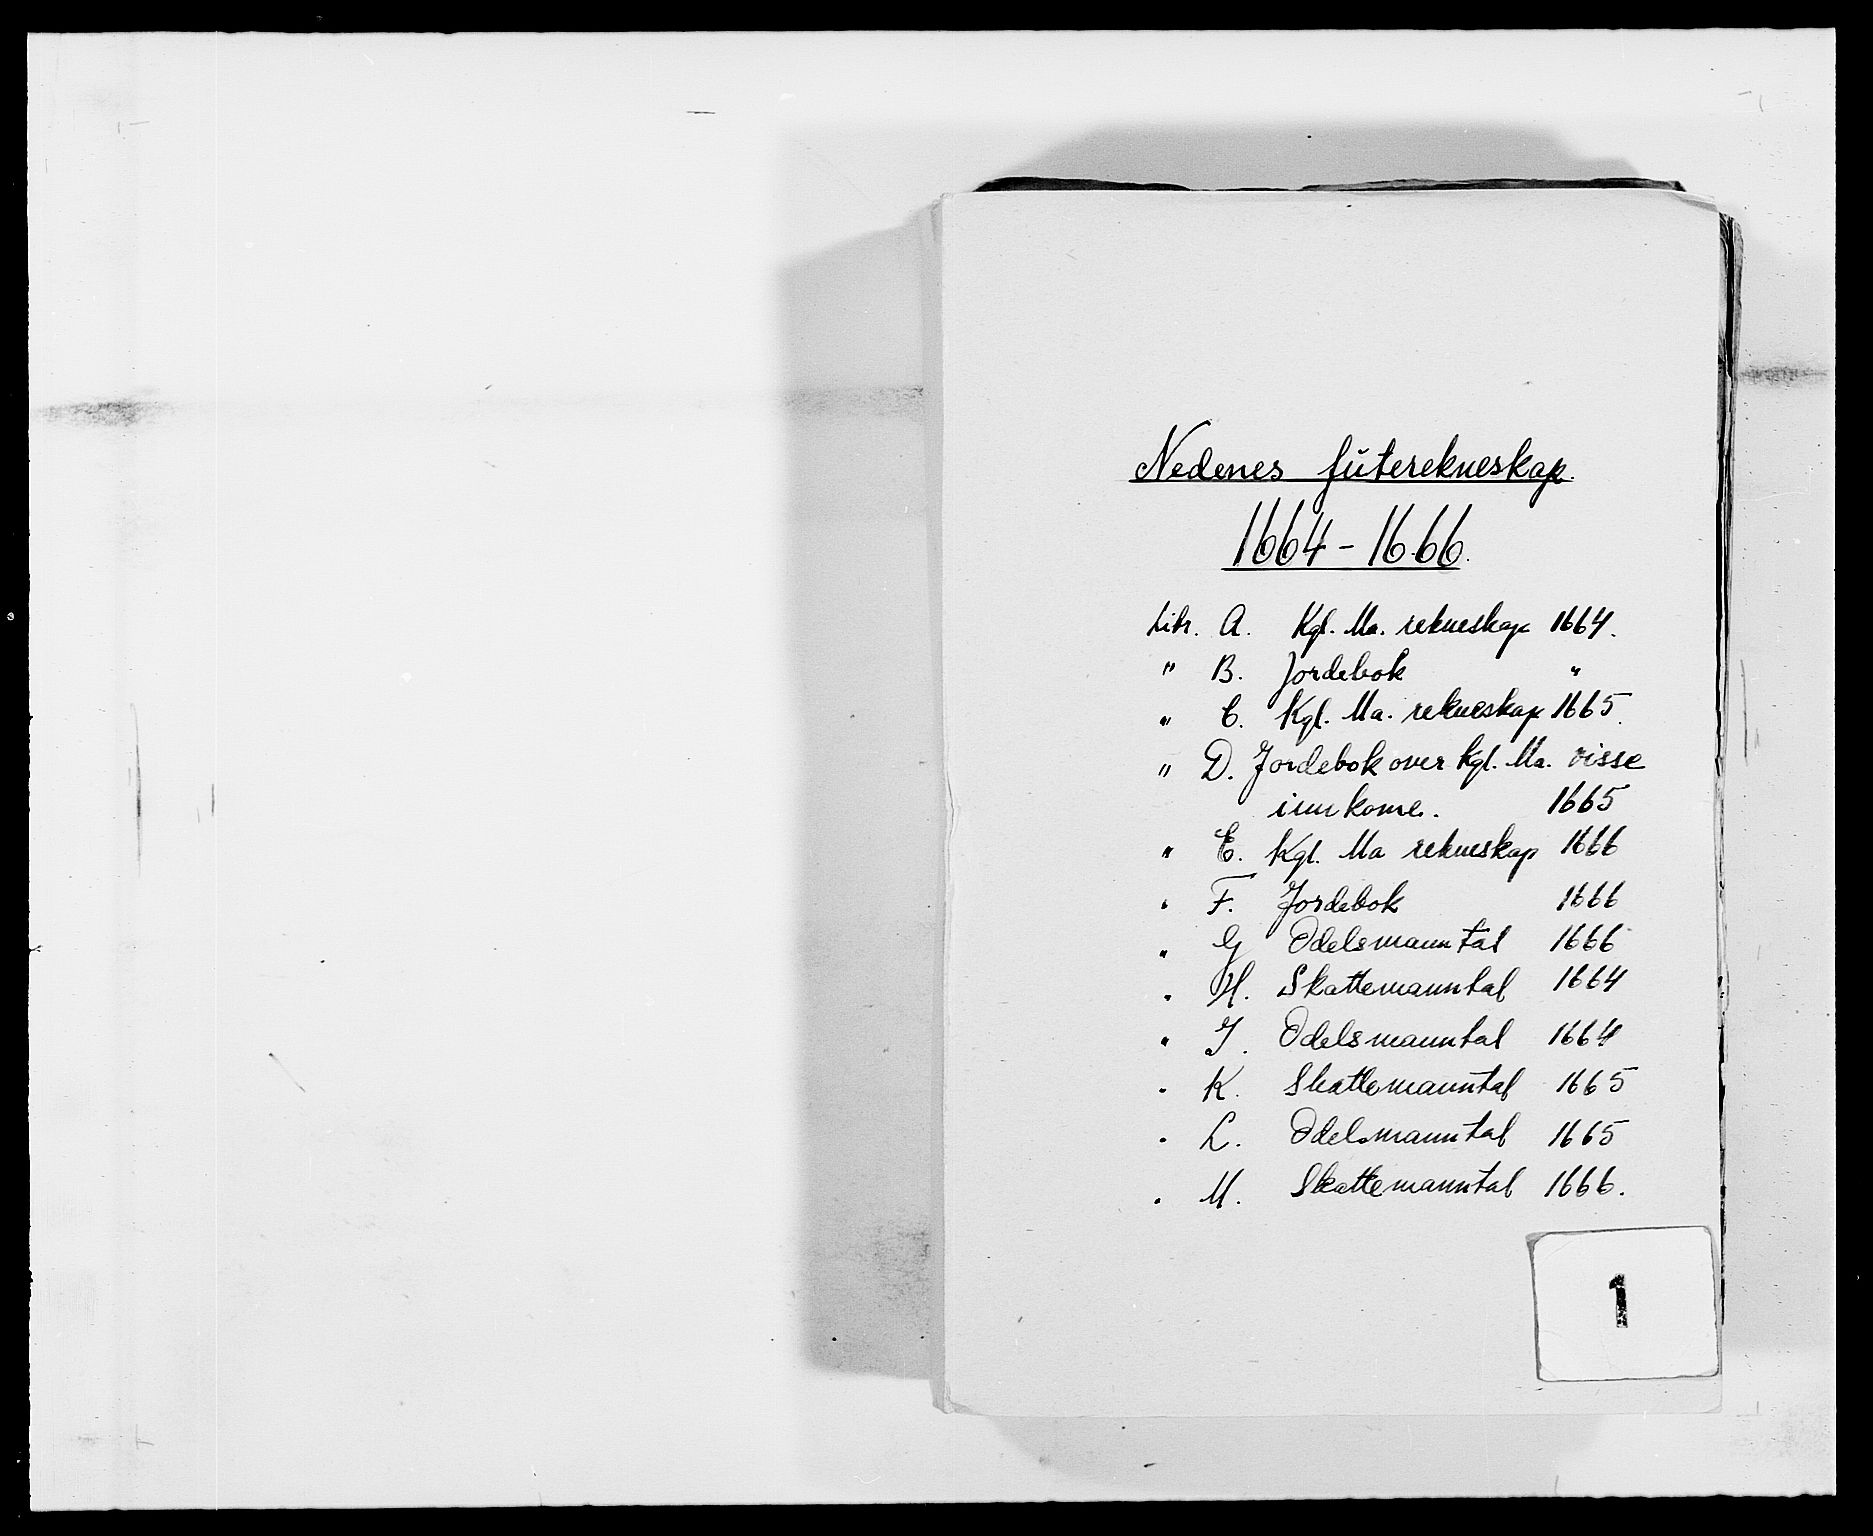 Nedenes fúterekneskap.
1664-1666.
Litr. A. Kgl. Ma. rekneskap 1664.
" B. Jordebok "
" C. Kgl. Ma. rekneskap 1665.
" D. Jordebok over Kgl. Ma. visse
innkome. 1665
" E. Kgl. Ma rekneskap 1666
" F. Jordebok 1666
" G Odelsmanntal 1666
" H. Skattemanntal 1664
" J. Odelsmanntal 1664
" K. Skattemanntal 1665
" L. Odelsmanntal 1665
" M. Skattemanntal 1666.
1